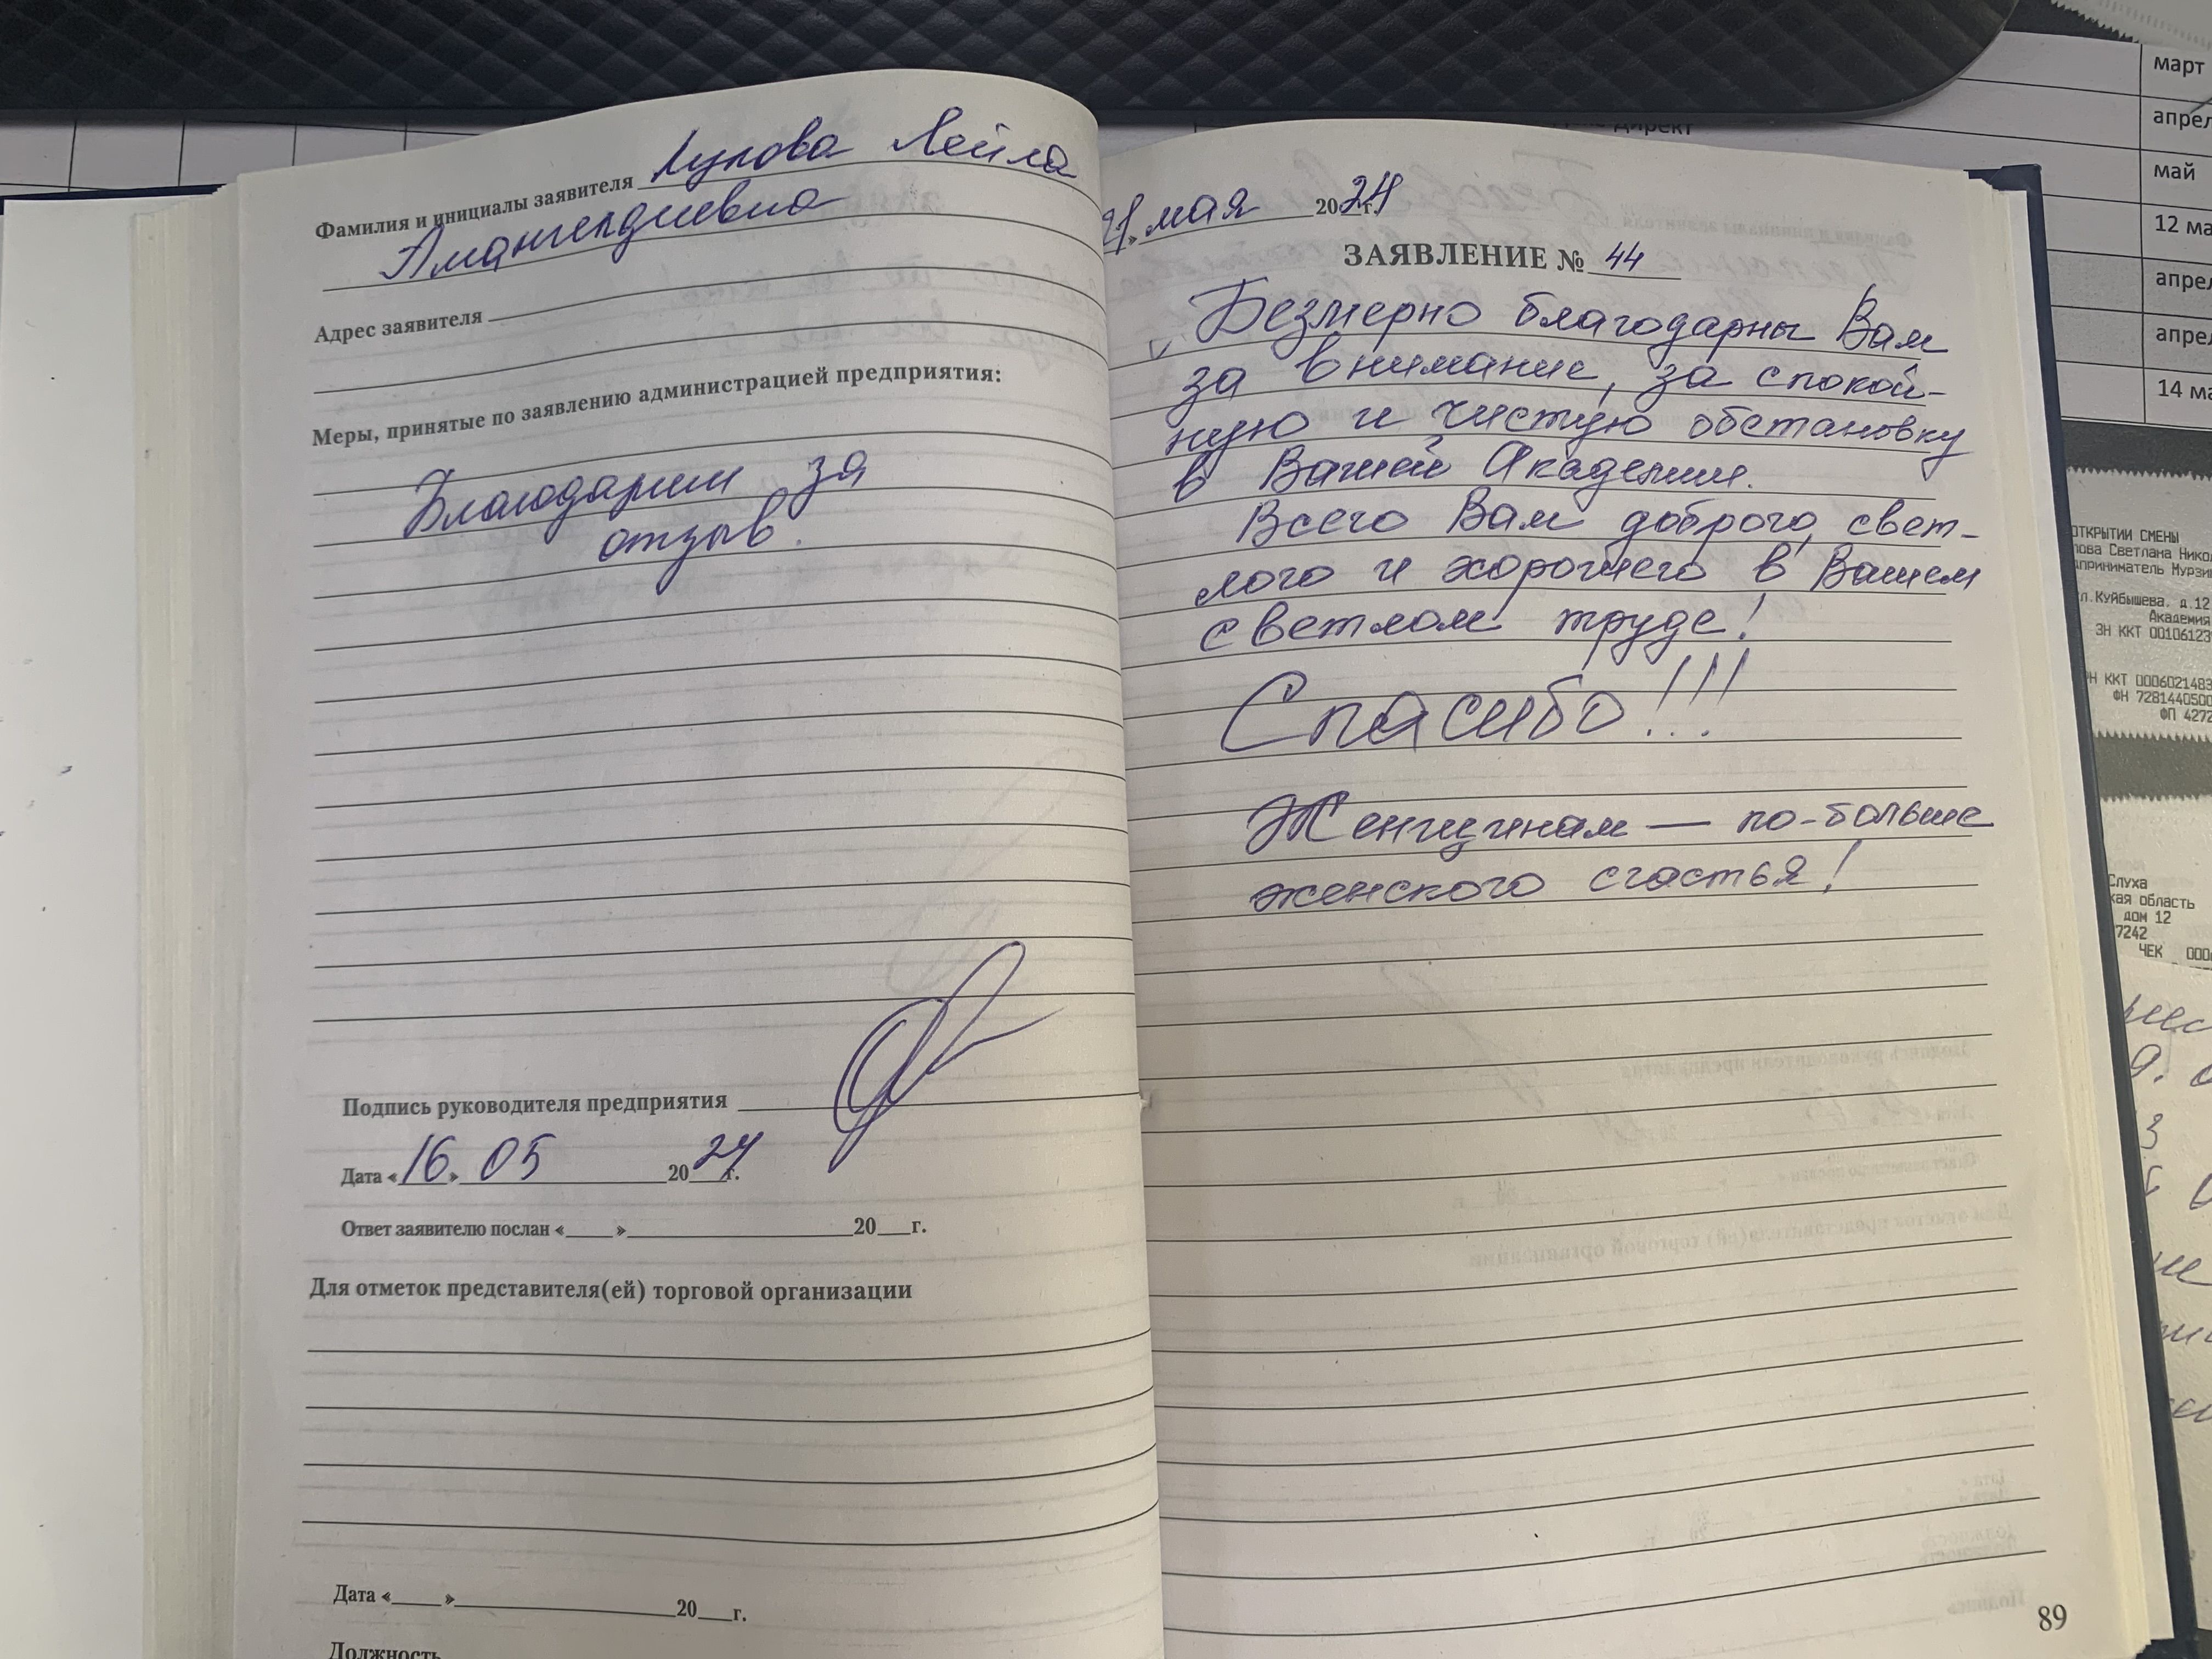 Фамилия и инициалы заявителя Лупова Лейла
Амангелдиевна
Адрес заявителя
Меры, принятые по заявлению администрацией предприятия:
Благодарим за
отзыв.
Подпись руководителя предприятия
Дата «16» 05 2024 г.
Ответ заявителю послан «___» 20__г.
Для отметок представителя(ей) торговой организации
Дата «___» 20__г.
Должность
мая 2024 г.
ЗАЯВЛЕНИЕ № 44
Безмерно благодарны Вам
за внимание, за спокой-
ную и чистую обстановку
в Вашей Академии.
Всего Вам доброго, свет-
лого и хорошего в Вашем
светлом труде!
Спасибо!!!
Женщинам — по-больше
женского счастья!
89
март
апрел
май
12 ма
апрел
апрел
14 ма
ОТКРЫТИИ СМЕНЫ
лова Светлана Никол
дприниматель Мурзин
л.Куйбышева, д.12
Академия
ЗН ККТ 00106123
РН ККТ 0006021483
ФН 7281440500
ФП 4272
Слуха
кая область
дом 12
7242
ЧЕК 000